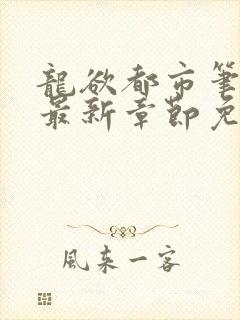 龍欲都市筆
最新章節免
風来一客